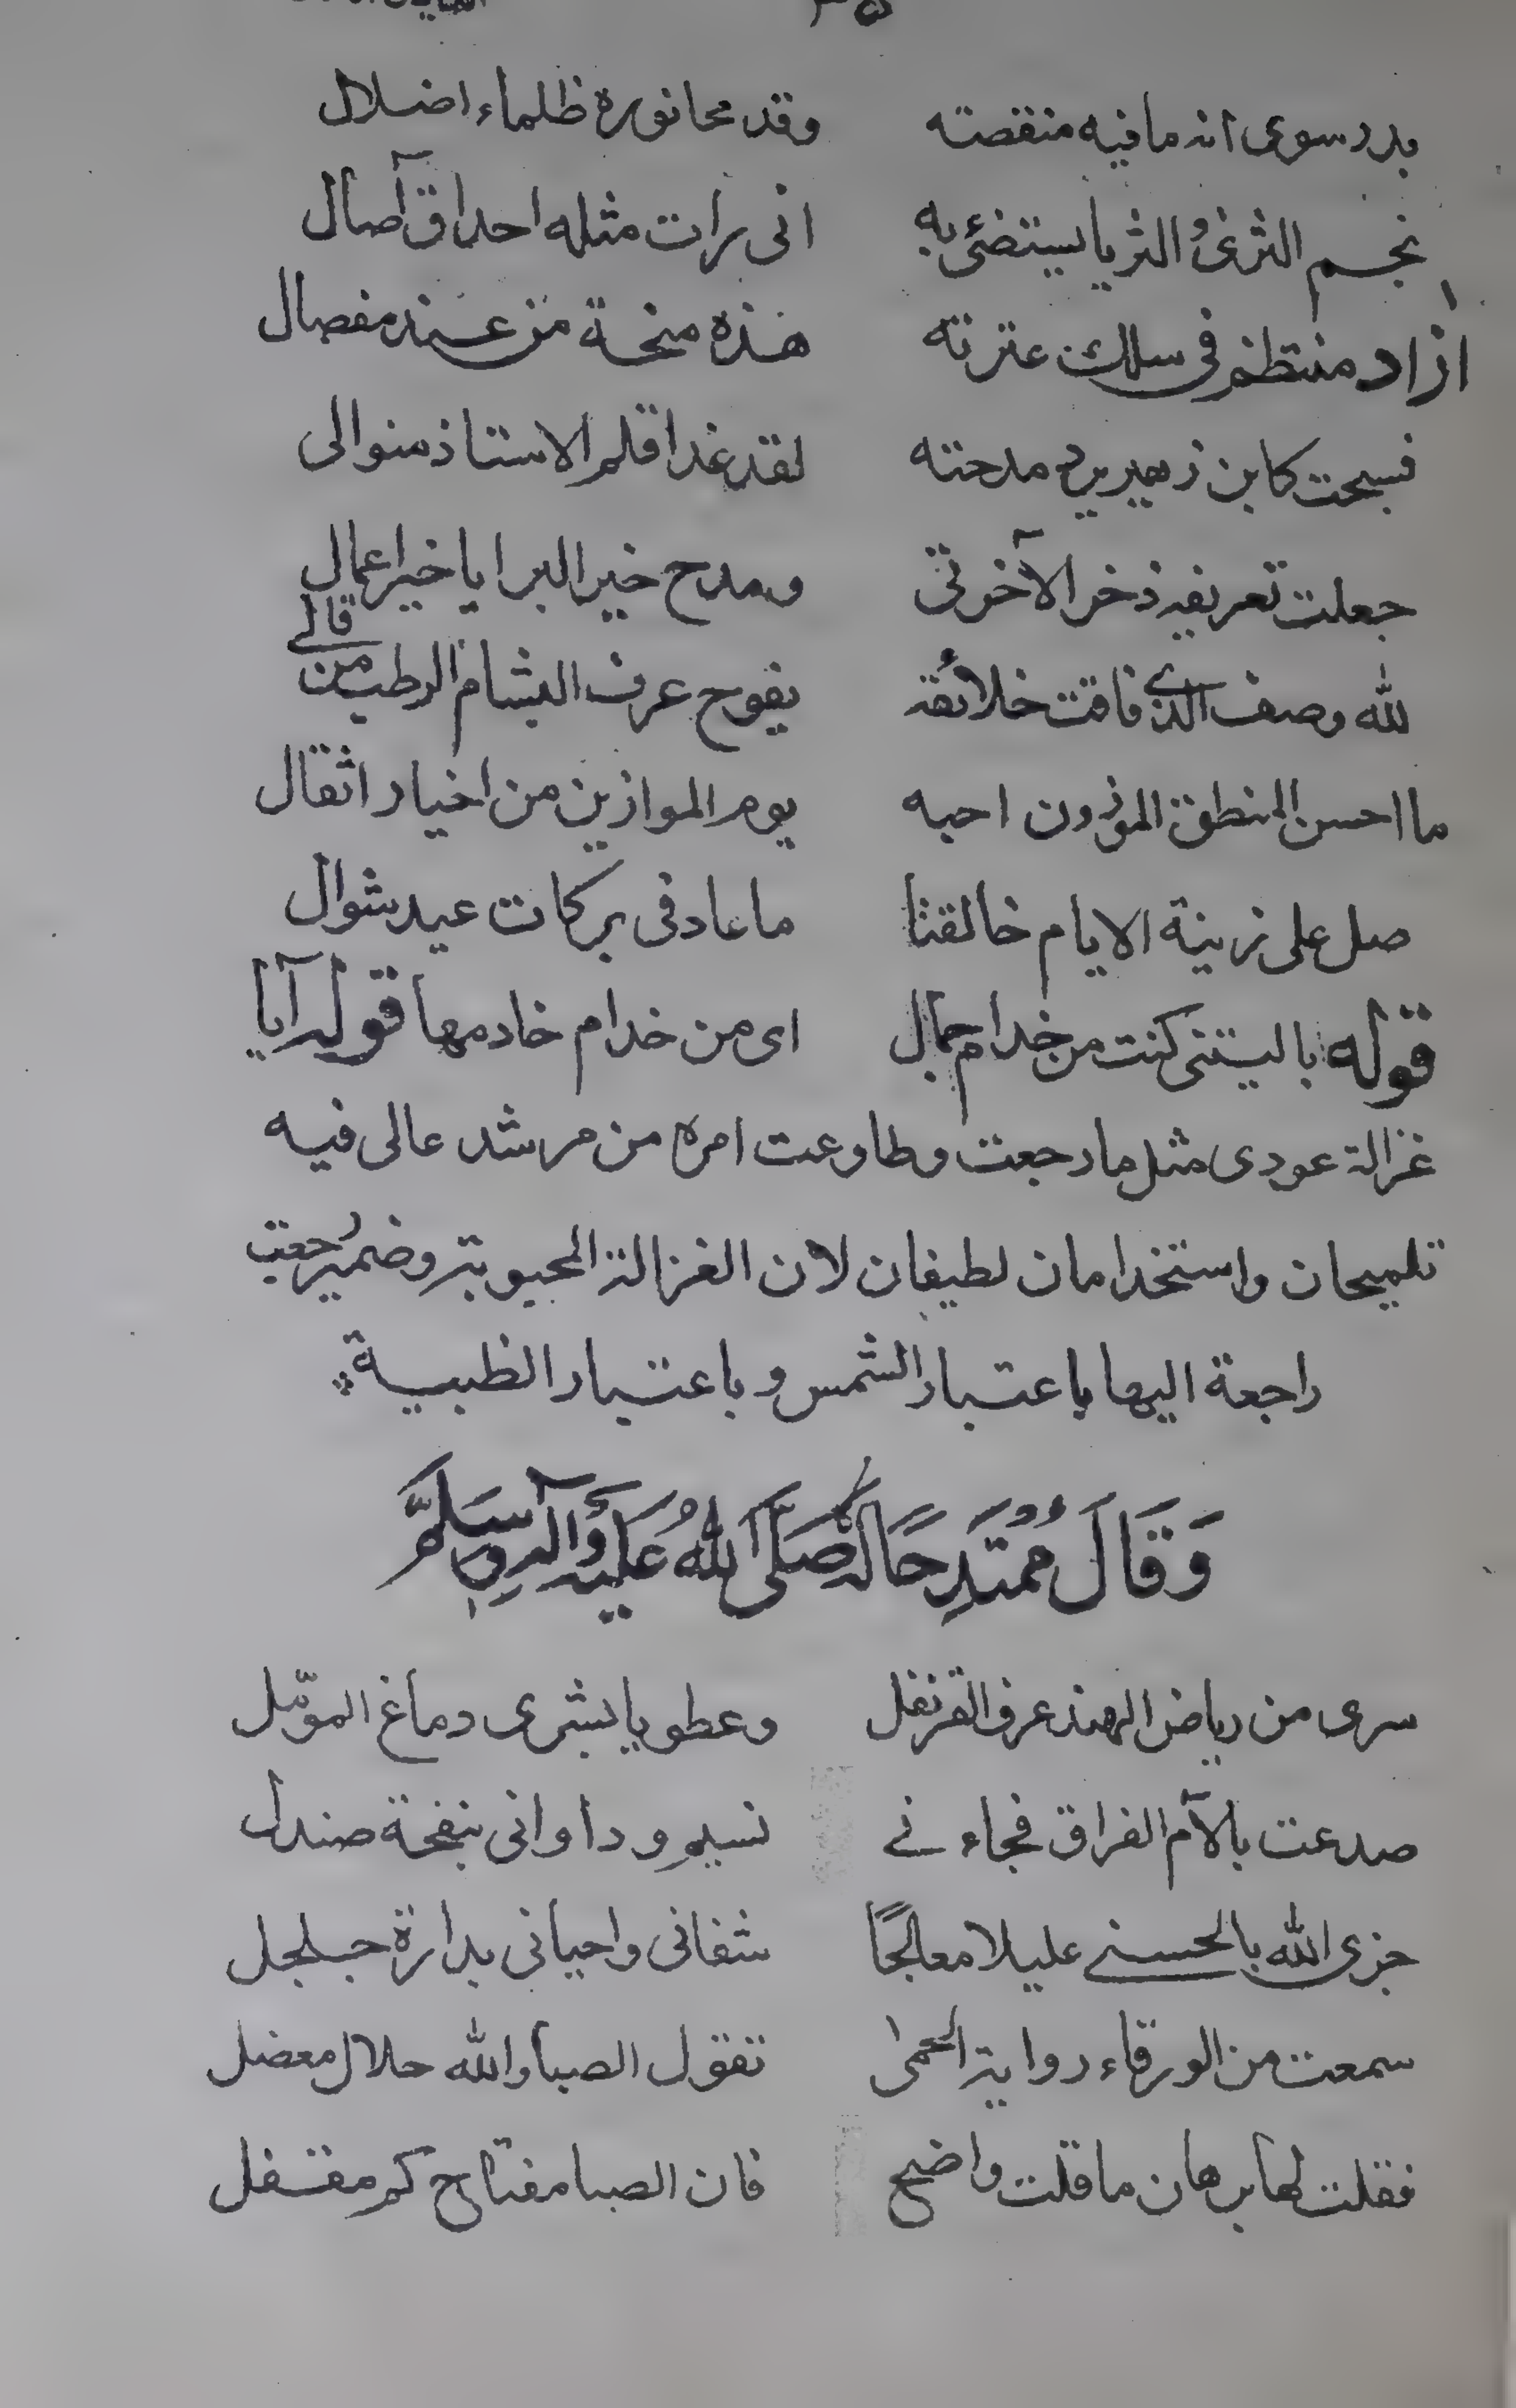 ٣٥
بدر سوى انه ما فيه منقصته وقد محا نوره ظلماء اضلال
نجم الثرى والثريا يستضئ به انى رات مثله احداق آصال
ازاد منتظم فى سلك عترته هذه منحة من عند مفصال
فسبحت كابن زهير برد مدحته لقد غدا قلم الاستاذ منوالى
جعلت تعريفه ذخر الآخرتى ومدح خير البرايا خير اعمال
لله وصف الذى فاقت خلائقه يفوح عرف البشام الرطب من قالے
ما احسن المنطق الموزون احبه يوم الموازين من اخيار اثقال
صل على زينة الايام خالقنا ما عاد فى بركات عيد شوال
قوله ياليتنى كنت من خدام جمال اى من خدام خادمها قوله آيا
غزالة عودى مثل ما رجعت وطاوعت امره من مرشد عالى فيه
تلميحان واستخدامان لطيفان لان الغزالة المحبوبة وضمير رجعت
راجعة اليها باعتبار الشمس وباعتبار الظبية
وَقَالَ مُمْتَدِحًا لَهُ صَلَّى اللهُ عَلَيْهِ وَآلِهِ وَسَلَّمَ
سرى من رياض الهند عرف القرنفل وعطر يا بشرى دماغ المؤمل
صدعت بالآم الفراق فجاءنے نسيم وداوانى بنفحة صندل
جزى الله بالحسنے عليلا معالجًا شفانى واحيانى بدارة جلجل
سمعت من الورقاء رواية الحمى تقول الصبا والله حلال معضل
فقلت لها برهان ما قلت واضح فان الصبا مفتاح كم مقفل